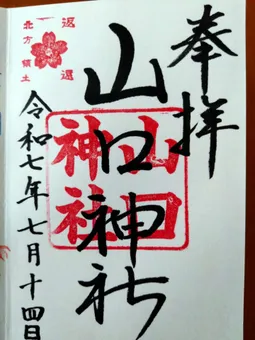 奉拝
山口神社
山口
神社
返還
北方領土
令和七年七月十四日